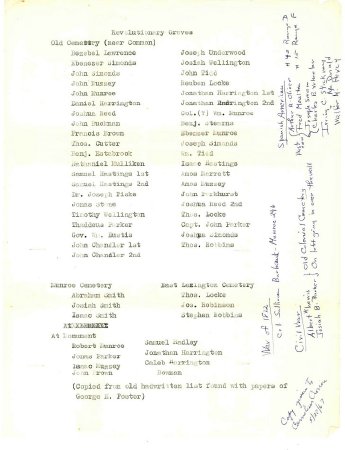 Revolutionary Graves
Old Cemetery (near Common)
Hezebel Lawrence    Joseph Underwood
Ebenezer Simonds    Josiah Wellington
John Simonds    John Tidd
John Mussey    Reuben Locke
John Munroe    Jonathan Harrington 1st
Daniel Harrington    Jonathan Harrington 2nd
Joshua Reed    Col.(?) Wm. Munroe
John Buckman    Benj. Stearns
Francis Brown    Ebenezer Munroe
Thos. Cutter    Joseph Simonds
Benj. Estabrook    Wm. Tidd
Nathaniel Mulliken    Isaac Hastings
Samuel Hastings 1st    Amos Marrett
Samuel Hastings 2nd    Amos Muzzey
Dr. Joseph Fiske    John Parkhurst
Jonas Stone    Joshua Reed 2nd
Timothy Wellington    Thos. Locke
Thaddeus Parker    Capt. John Parker
Gov. Wm. Eustis    Joshua Simonds
John Chandler 1st    Thos. Robbins
John Chandler 2nd
Munroe Cemetery    East Lexington Cemetery
Abraham Smith    Thos. Locke
Josiah Smith    Jos. Robinson
Isaac Smith    Stephen Robbins
At Monument
Robert Munroe    Samuel Hadley
Jonas Parker    Jonathan Harrington
Isaac Muzzey    Caleb Harrington
John Brown    Bowman
(Copied from old hadwritten list found with papers of
George H. Porter)
Spanish American
War of 1812
Civil War
Albert Munroe
Josiah B. Parker
Old Colonial Cemetery
On left going in over the wall